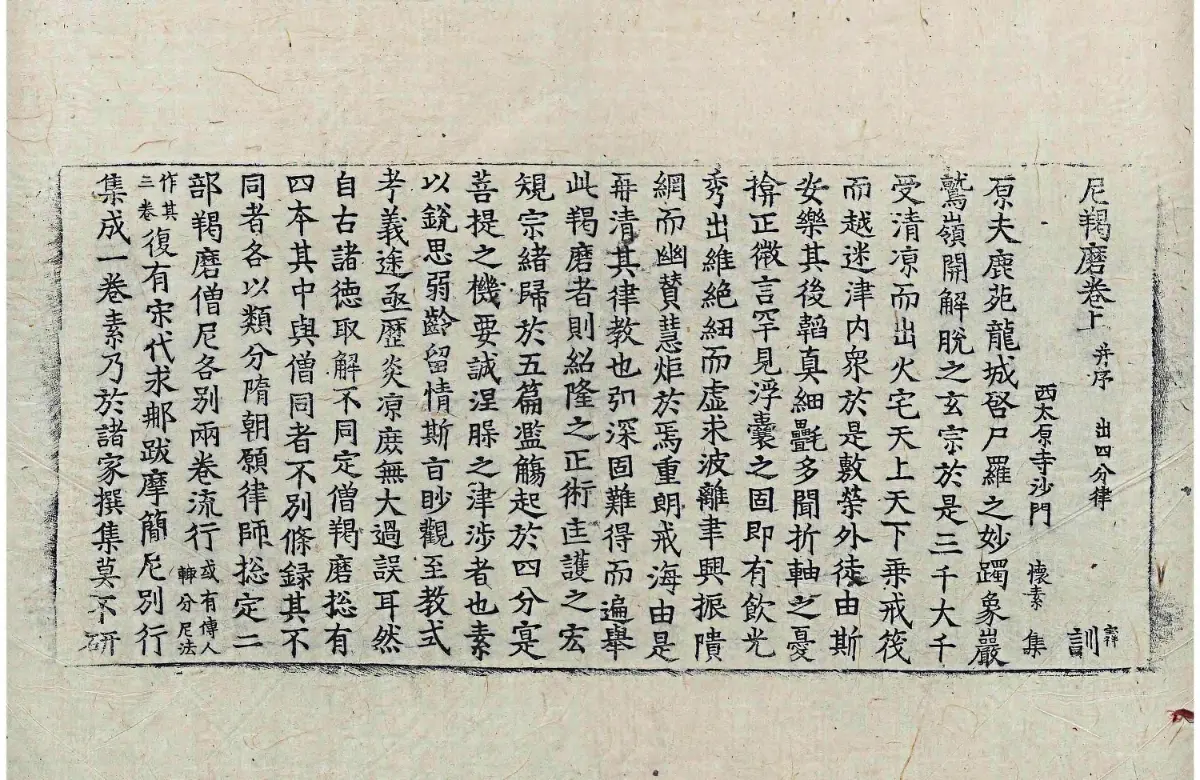 尼羯磨卷上 并序 出四分律 訓
西太原寺沙門 懷素 集
原夫鹿苑龍城啓尸羅之妙躅象巖
鷲嶺開解脫之玄宗於是三千大千
受清凉而出火宅天上天下乗戒筏
而越迷津内衆於是敷榮外徒由斯
安樂其後韜真細㲲多聞折軸之憂
揜正微言罕見浮囊之固即有飲光
秀出維絶紐而虚求波離聿興振隤
網而幽賛慧炬於焉重朗戒海由是
再清其律教也弘深固難得而遍舉
此羯磨者則紹隆之正術匡護之宏
規宗緒歸於五篇濫觴起於四分寔
菩提之機要誠涅槃之津涉者也素
以銳思弱齡留情斯旨眇觀至教式
考義途亟歷炎凉庶無大過誤耳然
自古諸徳取解不同定僧羯磨捴有
四本其中與僧同者不別條録其不
同者各以類分隋朝願律師捴定二
部羯磨僧尼各別兩卷流行或有傳人輙分尼法
作其三卷復有宋代求那跋摩簡尼別行
集成一卷素乃於諸家撰集莫不研